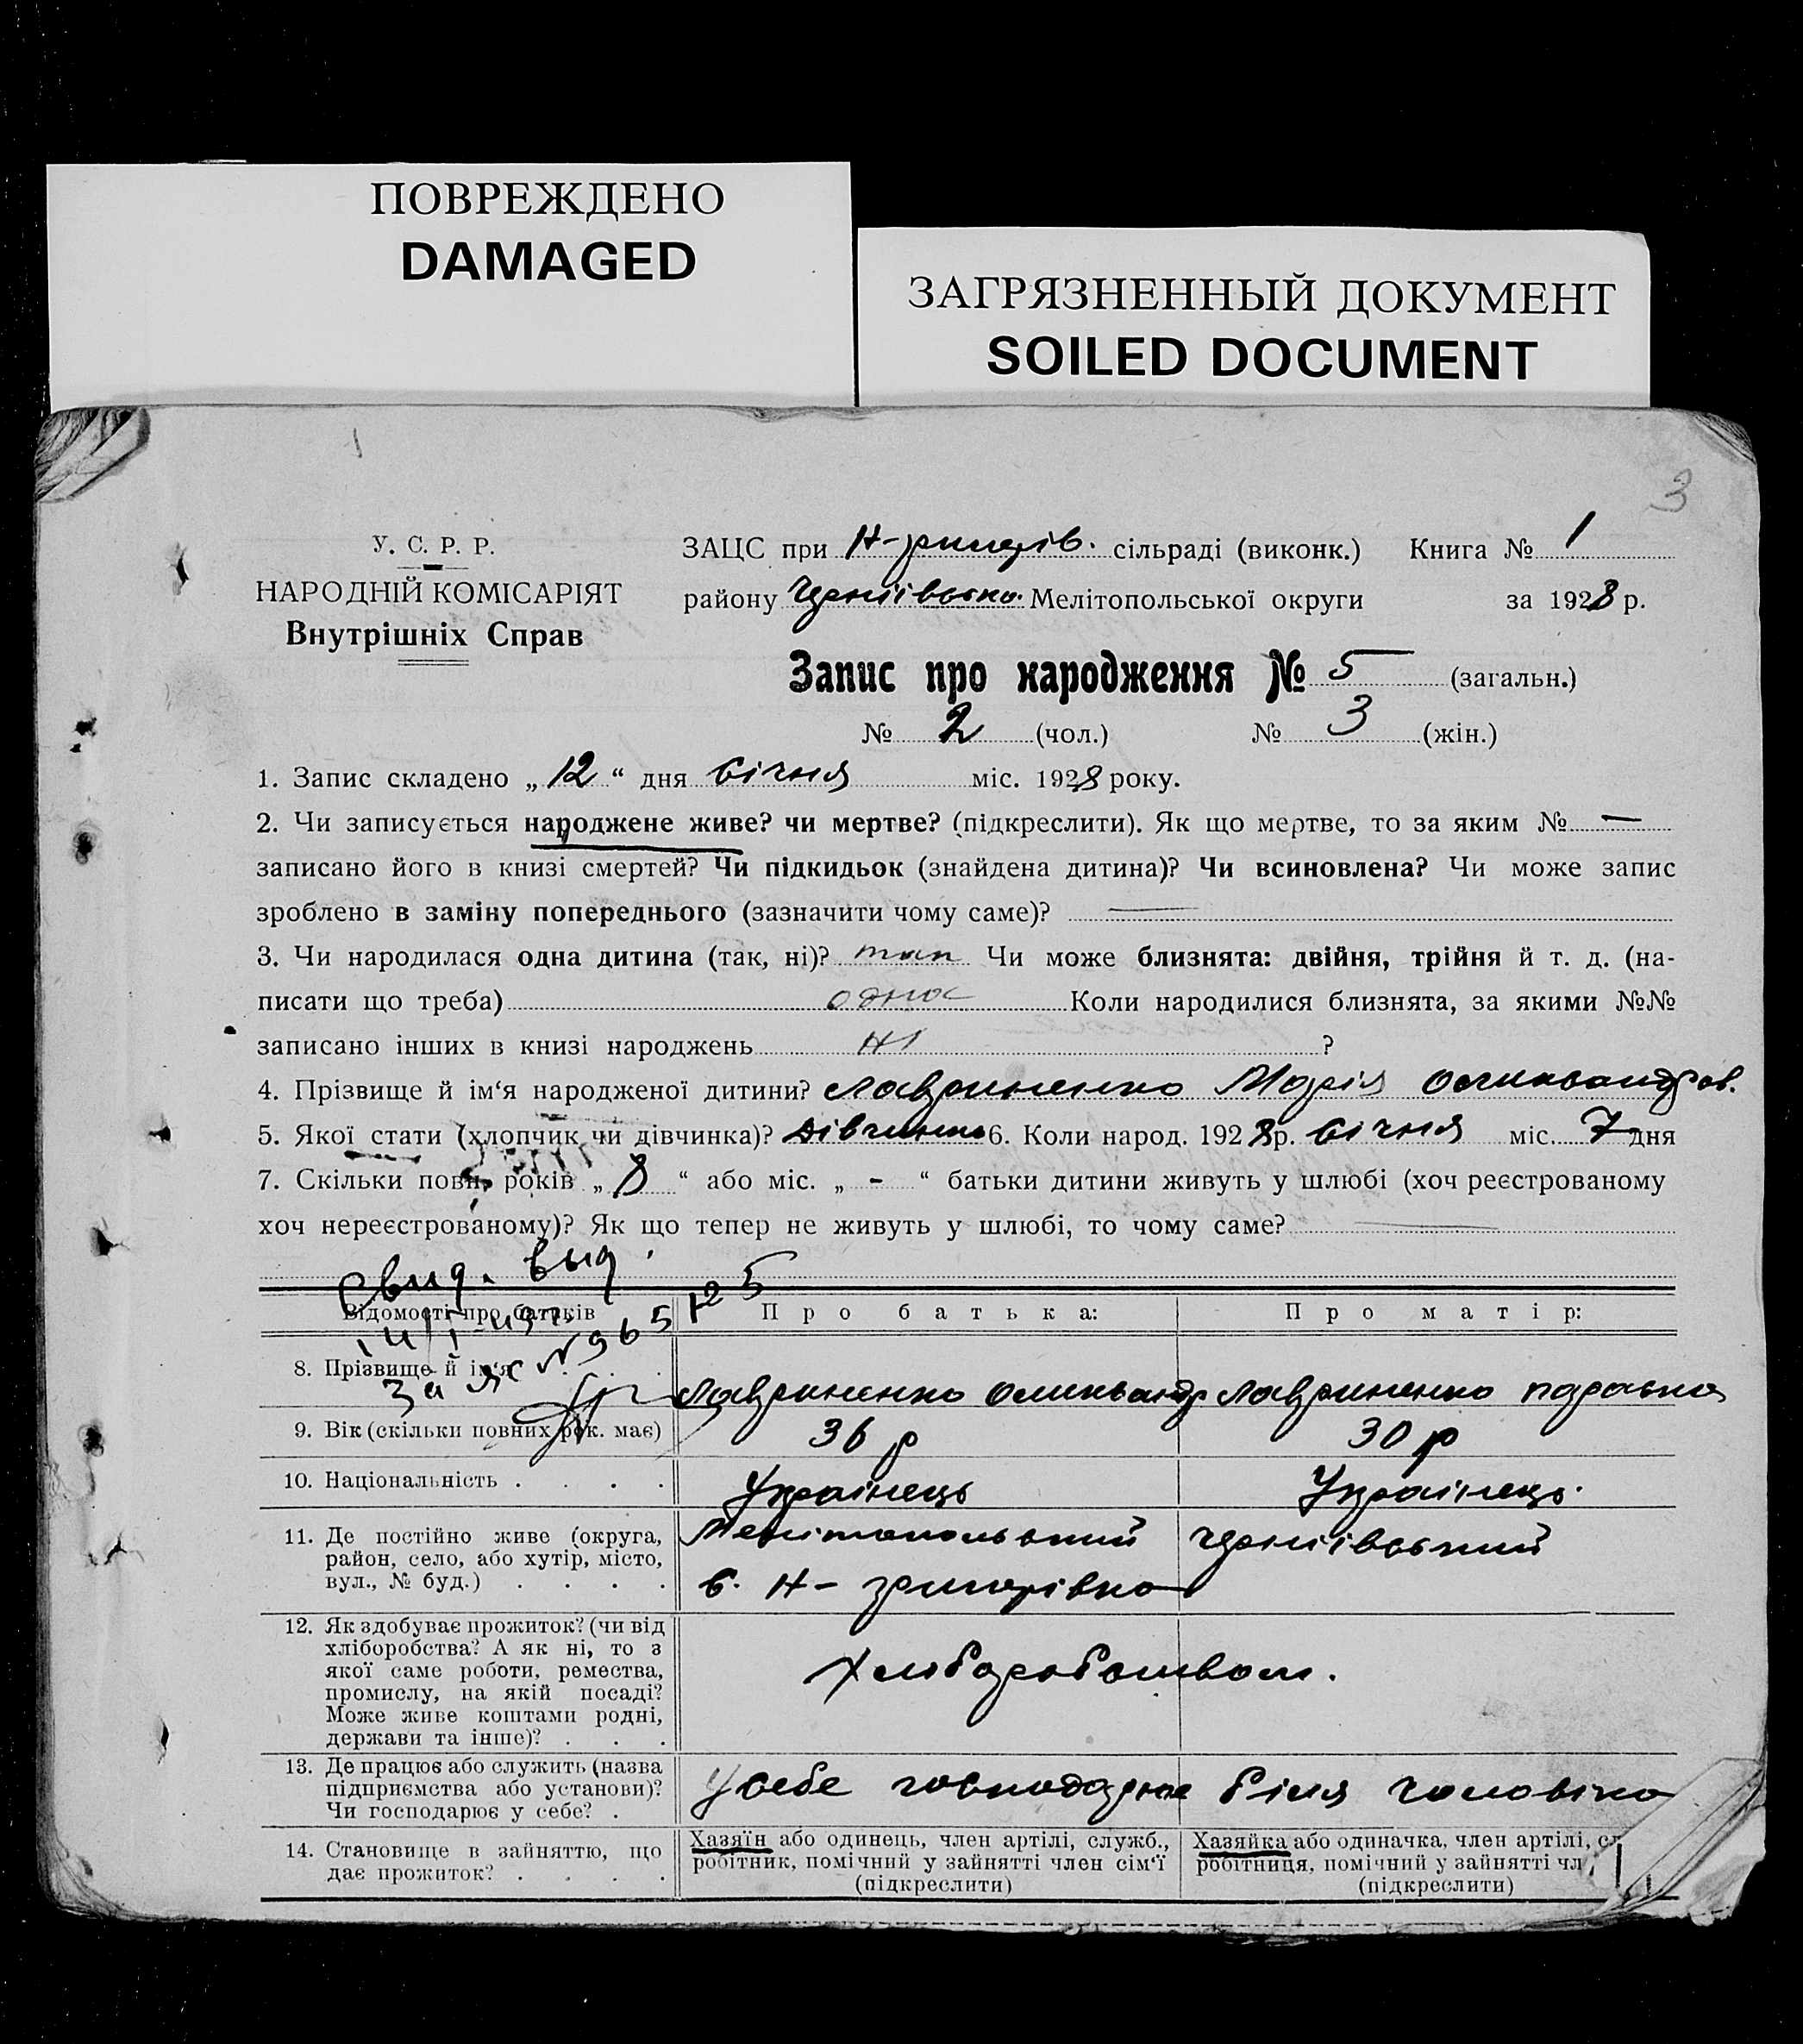 ПОВРЕЖДЕНО
DAMAGED
ЗАГРЯЗНЕННЫЙ ДОКУМЕНТ
SOILED DOCUMENT
1
3
У. С. Р. Р.
НАРОДНІЙ КОМІСАРІЯТ
Внутрішніх Справ
ЗАЦС при Н-григорів. сільраді (виконк.) Книга № 1
району Черніівсько. Мелітопольської округи за 1928 р.
Запис про народження № 5 (загальн.)
№ 2 (чол.) № 3 (жін.)
1. Запис складено „ 12 “ дня січня міс. 1928 року.
2. Чи записується народжене живе? чи мертве? (підкреслити). Як що мертве, то за яким № —
записано його в книзі смертей? Чи підкидьок (знайдена дитина)? Чи всиновлена? Чи може запис
зроблено в заміну попереднього (зазначити чому саме)? —
3. Чи народилася одна дитина (так, ні)? так Чи може близнята: двійня, трійня й т. д. (на-
писати що треба) одна Коли народилися близнята, за якими №№
записано інших в книзі народжень ні ?
4. Прізвище й ім‘я народженої дитини? Лавриненко Марія Олександров.
5. Якої стати (хлопчик чи дівчинка)? Дівчинка 6. Коли народ. 1928 р. січня міс. 7 дня
7. Скільки повн. років „ 8 “ або міс. „ - “ батьки дитини живуть у шлюбі (хоч реєстрованому
хоч нереєстрованому)? Як що тепер не живуть у шлюбі, то чому саме? —
Свид. выд.
Відомості про батьків Про батька: Про матір:
8. Прізвище й ім‘я . . . Лавриненко Олександр Лавриненко Параска
9. Вік (скільки повних рок. має) 36 р 30 р
10. Національність . . . . Українець Українець.
11. Де постійно живе (округа, Мелітопольський Черніівський
район, село, або хутір, місто,
вул., № буд.) . . . . с. Н-григорівка
12. Як здобуває прожиток? (чи від
хліборобства? А як ні, то з
якої саме роботи, ремества, Хліборобством.
промислу, на якій посаді?
Може живе коштами родні,
держави та інше)? . . .
13. Де працює або служить (назва
підприємства або установи)? У себе господарює біля чоловіка
Чи господарює у себе? .
14. Становище в зайняттю, що
дає прожиток? . . . .
Хазяїн або одинець, член артілі, служб.,
робітник, помічний у зайнятті член сім‘ї
(підкреслити)
Хазяйка або одиначка, член артілі,
робітниця, помічний у зайнятті
(підкреслити)